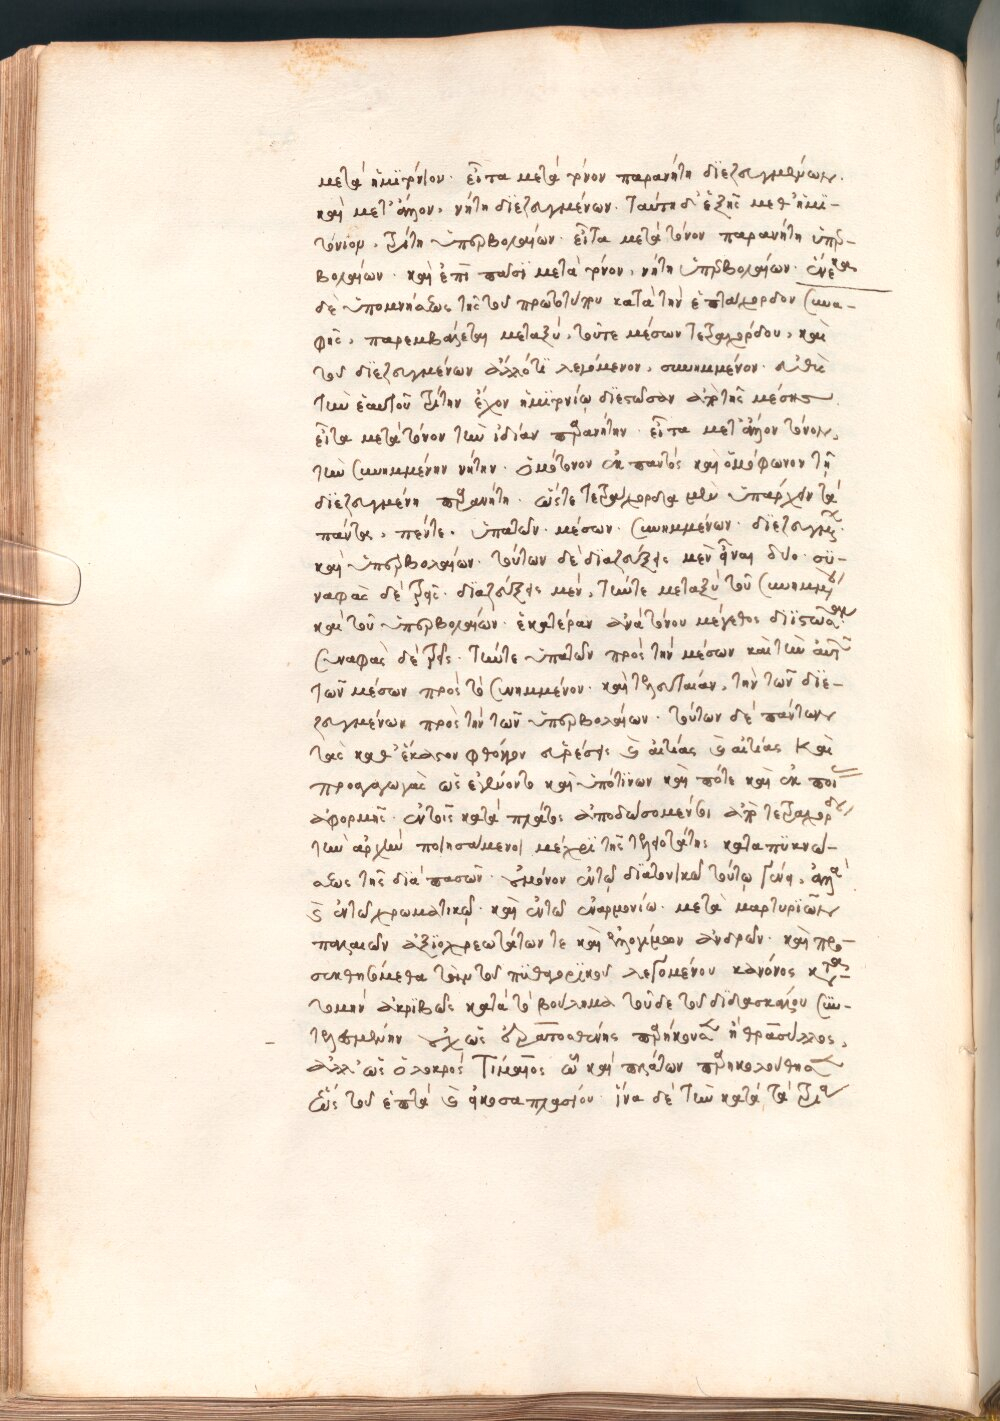 μετὰ ἡμιτόνιον· εἶτα μετὰ τόνον παρανήτη διεζευγμένων.
καὶ μετ' ἄλλον, νήτη διεζευγμένων· ταύτη δ' ἑξῆς μεθ' ἡμι-
τόνιον, τρίτη ὑπερβολαίων· εἶτα μετὰ τόνον παρανήτη ὑπερ-
βολαίων· καὶ ἐπὶ πᾶσι μετὰ τόνον, νήτη ὑπερβολαίων· ἕνεκα
δὲ ὑπομνήσεως τῆς τοῦ πρωτοτύπου κατὰ τὴν ἑπτάχορδον συνα-
φῆς, παρεμβάλεται μεταξὺ, τοῦτε μέσων τετραχόρδου, καὶ
τοῦ διεζευγμένων ἄλλό τι λεγόμενον, συνημμένον· εὐθὺς
τὴν ἑαυτοῦ τρίτην ἔχον ἡμιτονίῳ διεστῶσαν ἀπὸ τῆς μέσης
εἶτα μετὰ τόνον τὴν ἰδίαν παρανήτην· εἶτα μετ' ἄλλον τόνον,
τὴν συνημμένην νήτην· ὁμότονον ἐκ παντὸς καὶ ὁμόφωνον τῇ
διεζευγμένῃ παρανήτῃ· ὥστε τετράχορδα μὲν ὑπάρχειν τὰ
πάντα, πέντε· ὑπατῶν· μέσων· συνημμένων· διεζευγμένων·
καὶ ὑπερβολαίων· τούτων δὲ διαζεύξεις μὲν εἶναι δύο· συ-
ναφὰς δὲ τρεῖς· διαζεύξεις μὲν, τήντε μεταξὺ τοῦ συνημμένου
καὶ τοῦ ὑπερβολαίων· ἑκατέραν ἀνὰ τόνου μέγεθος διεστῶσαν
συναφὰς δὲ τρεῖς· τήντε ὑπατῶν πρὸς τὴν μέσων καὶ τὴν αὐτῶν
τῶν μέσων πρὸς τὸ συνημμένον· καὶ τελευταίαν, τὴν τῶν διε-
ζευγμένων πρὸς τὴν τῶν ὑπερβολαίων· τούτων δὲ πάντων
τὰς καθ' ἕκαστον φθόγγον εὑρέσεις καὶ αἰτίας καὶ αἰτίας καὶ
προαγωγὰς ὡς ἐγένοντο καὶ ὑπὸ τίνων καὶ πότε καὶ ἐκ ποίας
ἀφορμῆς· ἐν τοῖς κατὰ πλάτος ἀποδώσομέν σοι ἀπὸ τετραχόρδου
τὴν ἀρχὴν ποιησάμενοι μέχρι τῆς τελειοτάτης καταπυκνώ-
σεως τῆς διὰ πασῶν· οὐ μόνον ἐν τῷ διατονικῷ τούτῳ γένει, ἀλλὰ
καὶ ἐν τῷ χρωματικῷ· καὶ ἐν τῷ ἐναρμονίῳ· μετὰ μαρτυριῶν
παλαιῶν ἀξιοχρεωτάτων τε καὶ ἐλλογίμων ἀνδρῶν· καὶ προ-
σεκθησόμεθα τὴν τοῦ πυθαγορικοῦ λεγομένου κανόνος κατα-
τομὴν ἀκριβῶς κατὰ τὸ βούλημα τοῦδε τοῦ διδασκάλου συν-
τελουμένην οὐχ ὡς ἐρατοσθένης παρήκουσεν ἢ θράσυλλος,
ἀλλ' ὡς ὁ λοκρὸς Τίμαιος ᾧ καὶ πλάτων παρηκολούθησεν
ἕως τοῦ ἑπτὰ καὶ εἰκοσαπλασίου· ἵνα δὲ τὴν κατὰ τὰ τρία